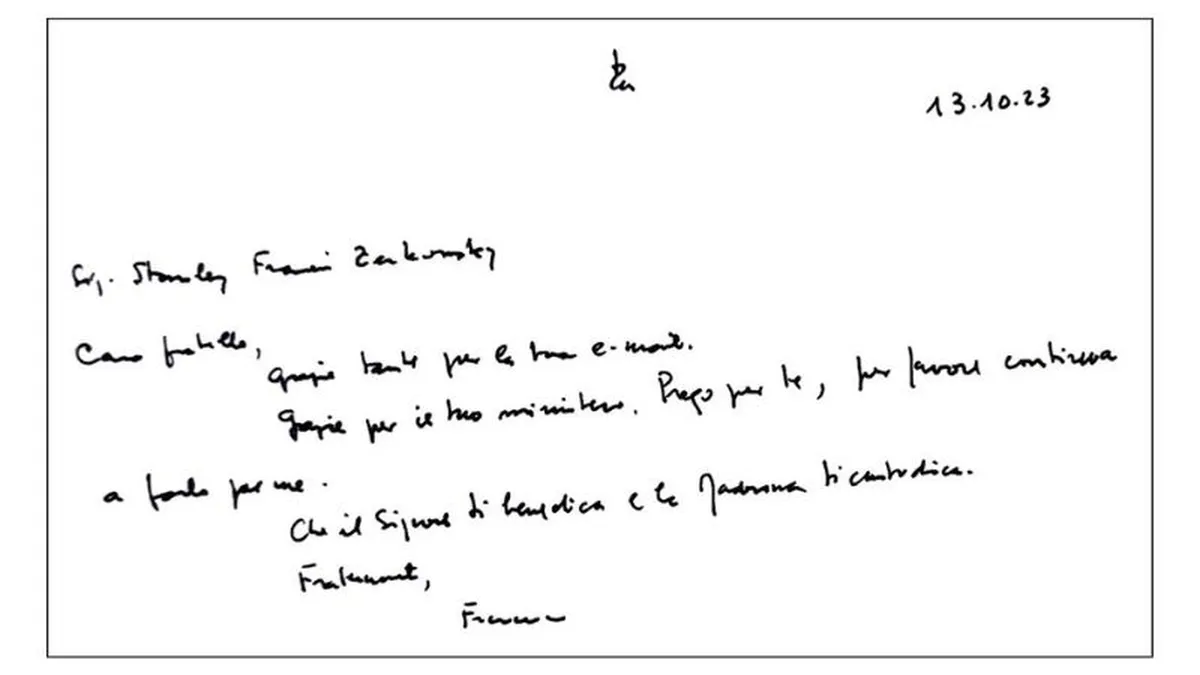 13.10.23
Sig. Stanley Francis
Caro fratello,
grazie tante per la tua e-mail.
Grazie per il tuo ministero. Prego per te, per favore continua
a farlo per me.
Che il Signore ti benedica e la Madonna ti custodisca.
Fraternamente,
Francesco